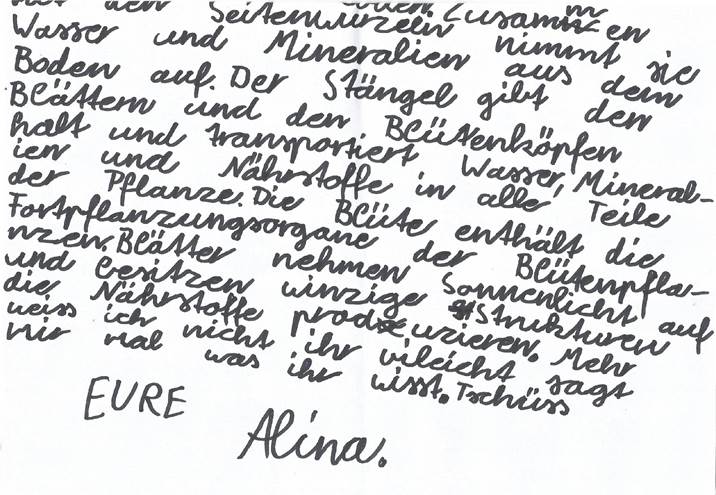 Zusammen
den Seitenwurzeln nimmt sie
Wasser und Mineralien aus dem
Boden auf. Der Stängel gibt den
Blättern und den Blütenköpfen
halt und transportiert Wasser, Mineral-
ien und Nährstoffe in alle Teile
der Pflanze. Die Blüte enthält die
Fortpflanzungsorgane der Blütenpfla-
nzen. Blätter nehmen Sonnenlicht auf
und besitzen winzige Strukturen
die Nährstoffe produzieren. Mehr
weiss ich nicht ihr vileicht sagt
mir mal was ihr wisst. Tschüss
EURE
Alina.